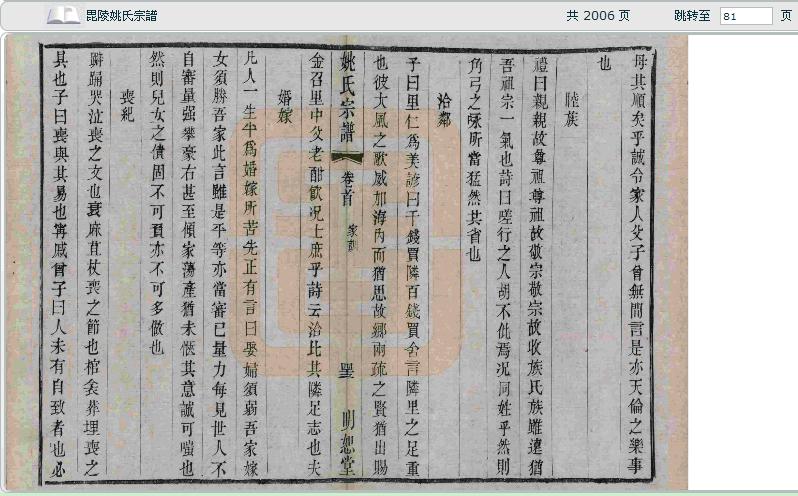 毘陵姚氏宗譜
共 2006 页
跳转至 81 页
母其順矣乎誠令家人父子曾無間言是亦天倫之樂事
也
睦族
禮曰親親故尊祖尊祖故敬宗敬宗故收族氏族雖遠猶
吾祖宗一氣也詩曰嗟行之人胡不佽焉况同姓乎然則
角弓之咏所當猛然其省也
洽鄰
子曰里仁爲美諺曰千錢買隣百錢買舍言隣里之足重
也彼大風之歌威加海內而猶思故鄉兩疏之賢猶出賜
姚氏宗譜
卷首
家訓
明恕堂
金召里中父老酣飮况士庶乎詩云洽比其隣足志也夫
婚嫁
凡人一生半爲婚嫁所苦先正有言曰娶婦須弱吾家嫁
女須勝吾家此言雖是平等亦當審已量力每見世人不
自審量强攀豪右甚至傾家蕩產猶未愜其意誠可嗤也
然則兒女之債固不可負亦不可多做也
喪紀
擗踊哭泣喪之文也衰麻苴杖喪之節也棺衾葬埋喪之
具也子曰喪與其易也寗戚曾子曰人未有自致者也必